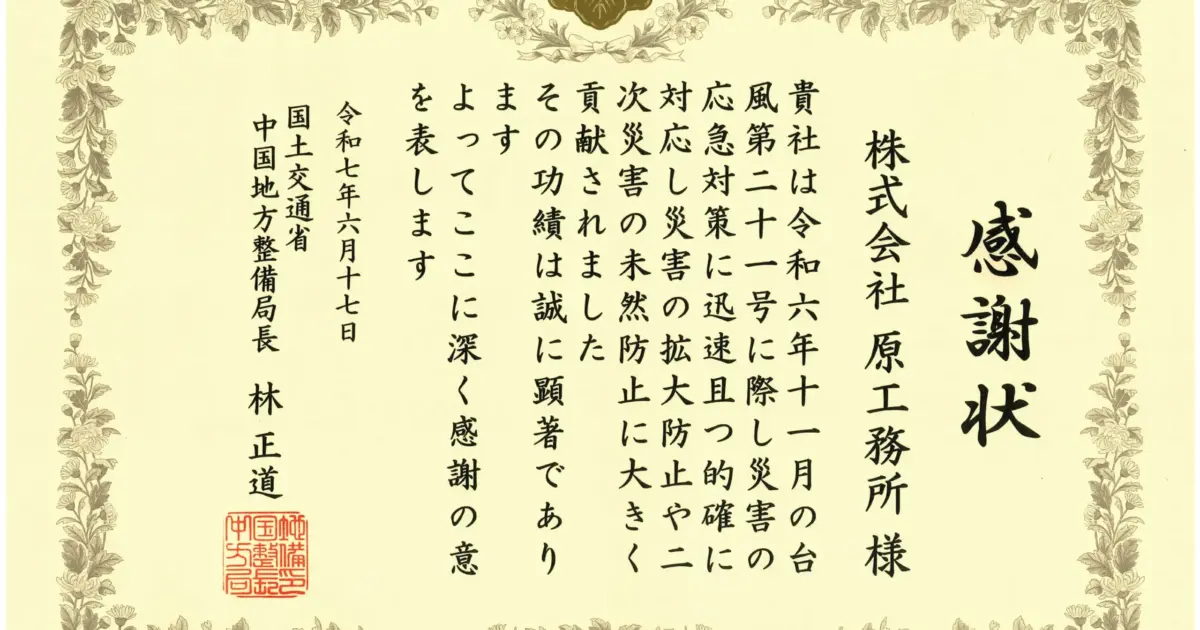 感謝状
株式会社 原工務所 様
貴社は令和六年十一月の台
風第二十一号に際し災害の
応急対策に迅速且つ的確に
対応し災害の拡大防止や二
次災害の未然防止に大きく
貢献されました
その功績は誠に顕著であり
ます
よってここに深く感謝の意
を表します
令和七年六月十七日
国土交通省
中国地方整備局長 林 正道